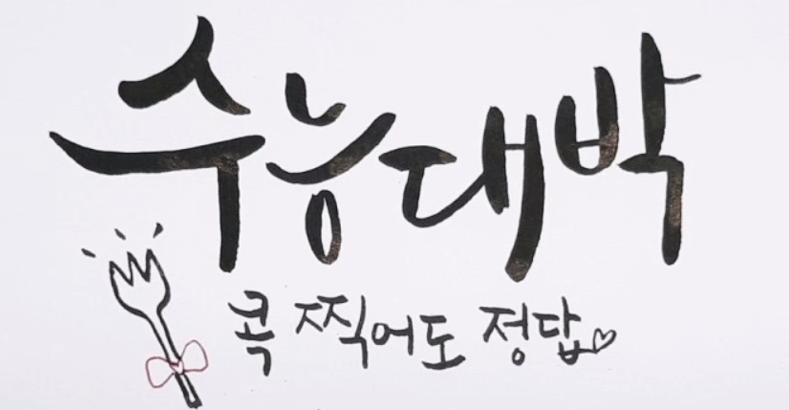 수능대박
콕 찍어도 정답♡